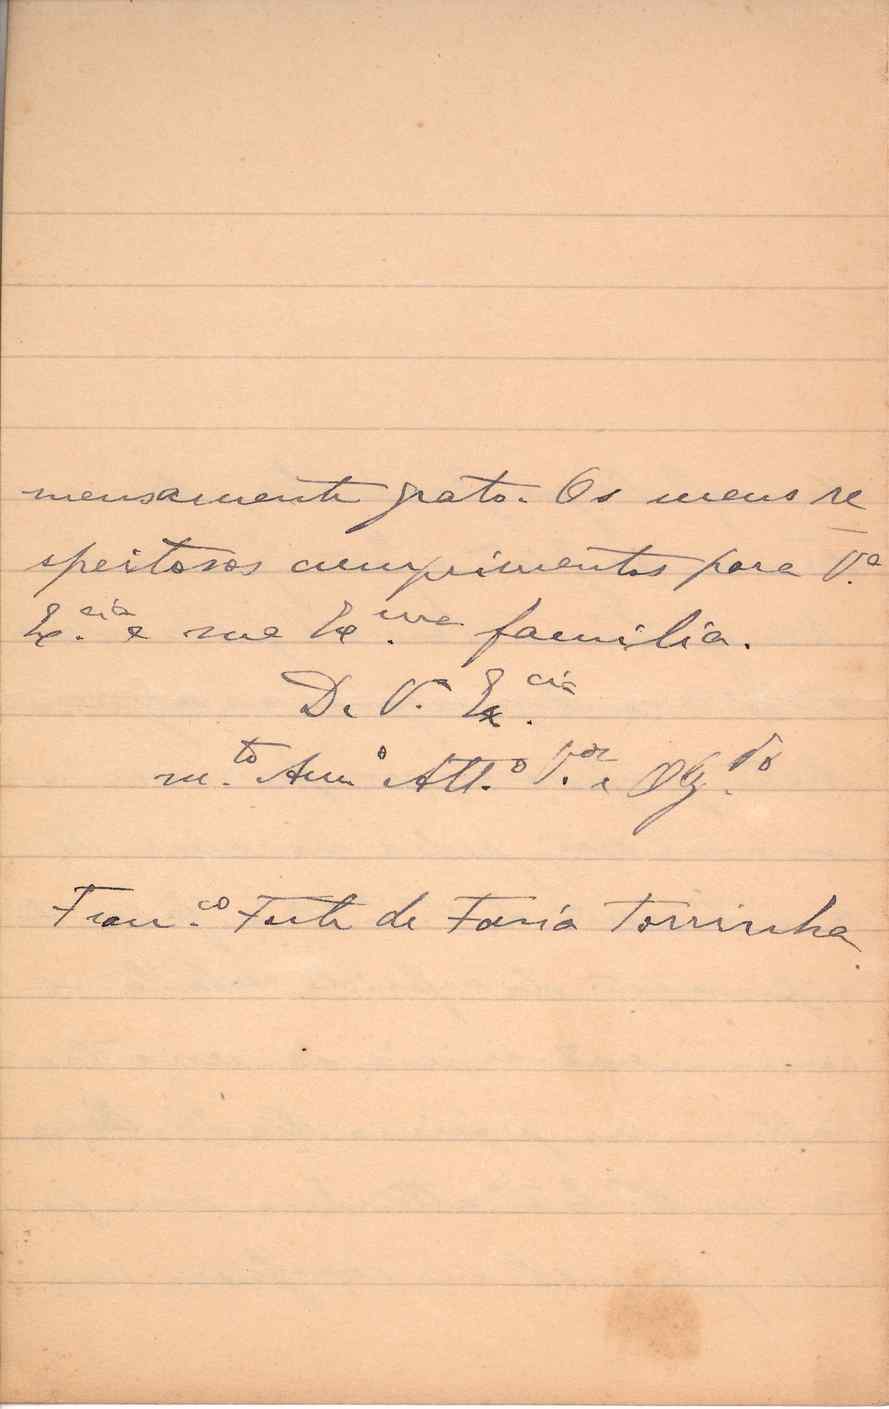 mensamente grato. Os meus re
speitosos cumprimentos para V.ª
Ex.cia e sua Ex.ma familia.
De V.ª Ex.cia
m.to Am.º Att.º V.or e Obg.do
Fran.co de Faria Torrinha